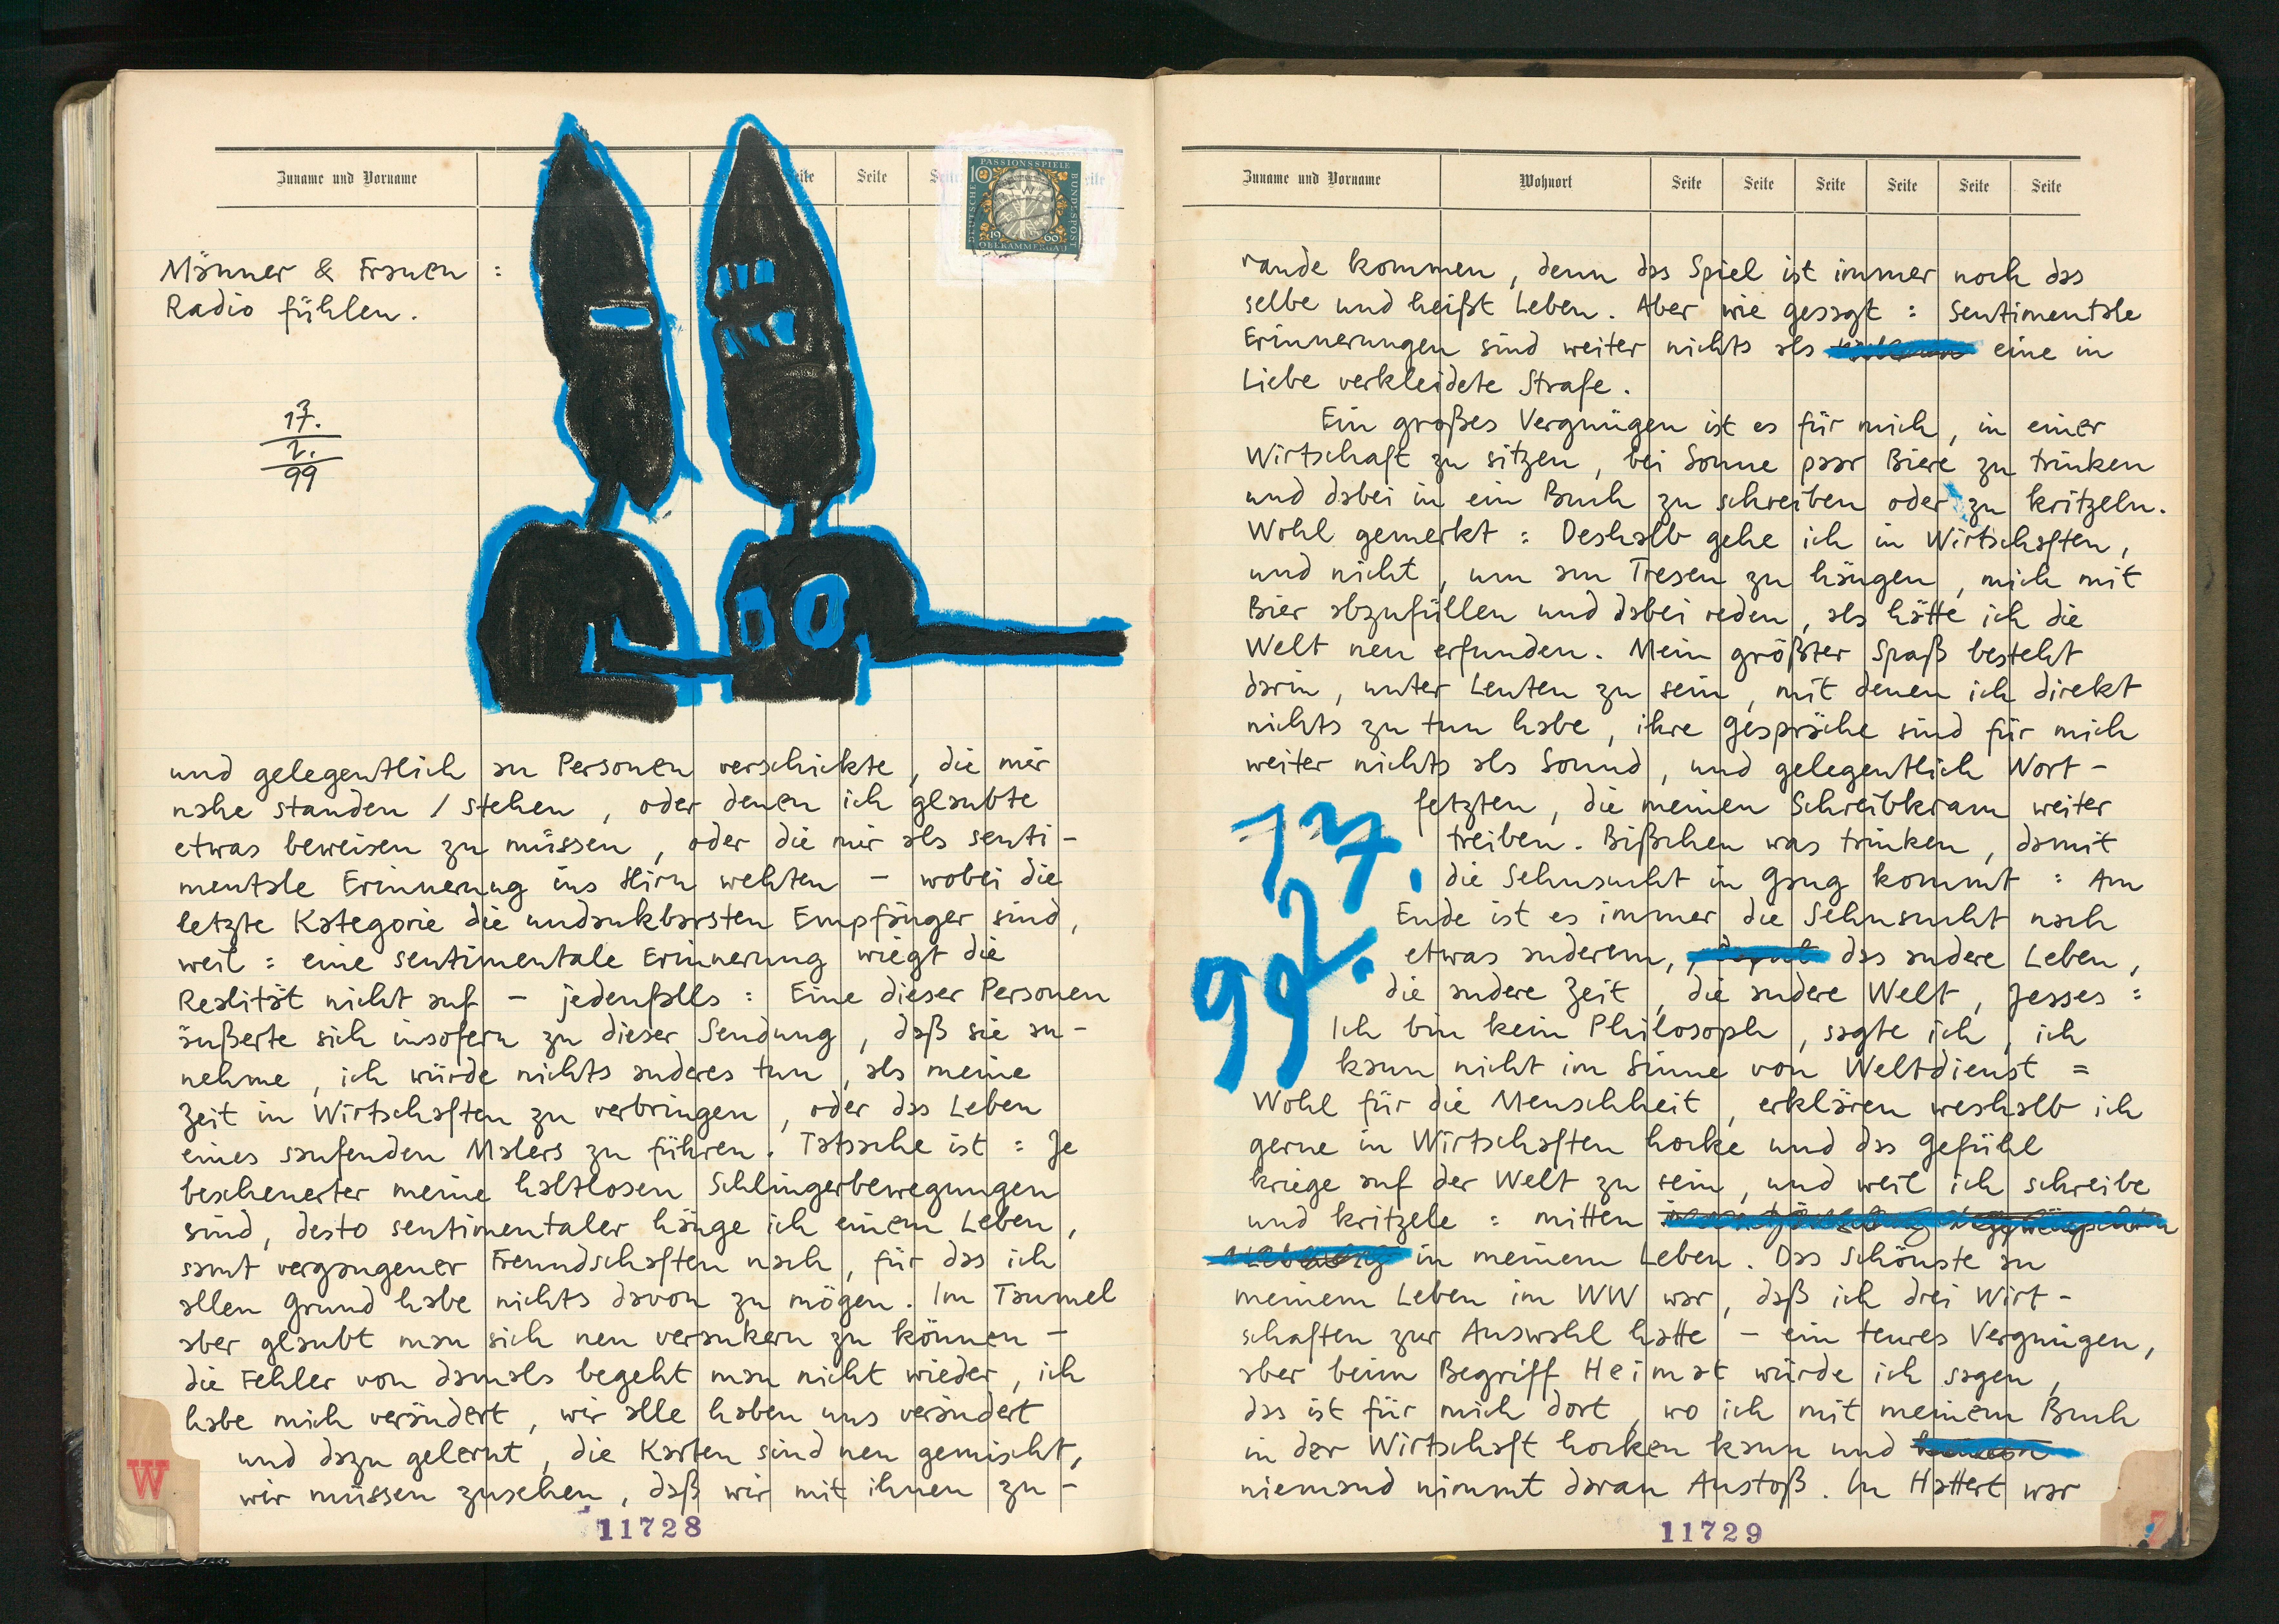 Zuname und Vorname
Seite
Seite
PASSIONSSPIELE
10
DEUTSCHE
BUNDESPOST
1960
OBERAMMERGAU
Männer & Frauen :
Radio fühlen.
17.
2.
99
und gelegentlich an Personen verschickte, die mir
nahe standen / stehen, oder denen ich glaubte
etwas beweisen zu müssen, oder die mir als senti-
mentale Erinnerung ins Hirn wehten – wobei die
letzte Kategorie die undankbarsten Empfänger sind,
weil : eine sentimentale Erinnerung wiegt die
Realität nicht auf – jedenfalls : Eine dieser Personen
äußerte sich insofern zu dieser Sendung, daß sie an-
nehme, ich würde nichts anderes tun, als meine
Zeit in Wirtschaften zu verbringen, oder das Leben
eines saufenden Malers zu führen. Tatsache ist : Je
bescheuerter meine haltlosen Schlingerbewegungen
sind, desto sentimentaler hänge ich einem Leben,
samt vergangener Freundschaften nach, für das ich
allen Grund habe nichts davon zu mögen. Im Taumel
aber glaubt man sich neu verankern zu können –
die Fehler von damals begeht man nicht wieder, ich
habe mich verändert, wir alle haben uns verändert
und dazu gelernt, die Karten sind neu gemischt,
wir müssen zusehen, daß wir mit ihnen zu-
W
11728
Zuname und Vorname
Wohnort
Seite
Seite
Seite
Seite
Seite
Seite
rande kommen, denn das Spiel ist immer noch das
selbe und heißt Leben. Aber wie gesagt : Sentimentale
Erinnerungen sind weiter nichts als eine in
Liebe verkleidete Strafe.
Ein großes Vergnügen ist es für mich, in einer
Wirtschaft zu sitzen, bei Sonne paar Biere zu trinken
und dabei in ein Buch zu schreiben oder zu kritzeln.
Wohl gemerkt : Deshalb gehe ich in Wirtschaften,
und nicht, um am Tresen zu hängen, mich mit
Bier abzufüllen und dabei reden, als hätte ich die
Welt neu erfunden. Mein größter Spaß besteht
darin, unter Leuten zu sein, mit denen ich direkt
nichts zu tun habe, ihre Gespräche sind für mich
weiter nichts als Sound, und gelegentlich Wort-
fetzten, die meinen Schreibkram weiter
treiben. Bißchen was trinken, damit
die Sehnsucht in Gang kommt : Am
Ende ist es immer die Sehnsucht nach
etwas anderem, das andere Leben,
die andere Zeit, die andere Welt, Jesses :
Ich bin kein Philosoph, sagte ich, ich
kann nicht im Sinne von Weltdienst =
Wohl für die Menschheit, erklären weshalb ich
gerne in Wirtschaften hocke und das Gefühl
kriege auf der Welt zu sein, und weil ich schreibe
und kritzele : mitten
in meinem Leben. Das Schönste an
meinem Leben im WW war, daß ich drei Wirt-
schaften zur Auswahl hatte – ein teures Vergnügen,
aber beim Begriff Heimat würde ich sagen,
das ist für mich dort, wo ich mit meinem Buch
in der Wirtschaft hocken kann und
niemand nimmt daran Anstoß. In Hattert war
17.
2.
99
11729
Z